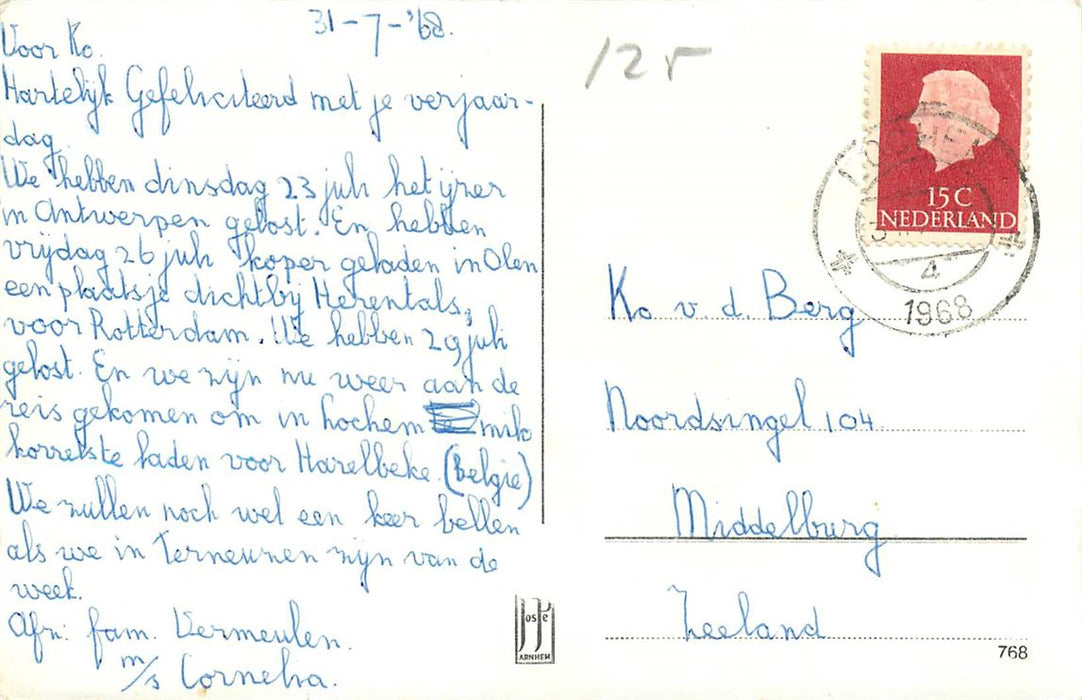 31-7-'68.
Voor Ko.
Hartelijk Gefeliciteerd met je verjaar-
dag
We hebben dinsdag 23 juli het ijzer
in Antwerpen gelost. En hebben
vrijdag 26 juli koper geladen in Olen
een plaatsje dichtbij Herentals,
voor Rotterdam. We hebben 29 juli
gelost. En we zijn nu weer aan de
reis gekomen om in Lochem
korrelste laden voor Harelbeke. (Belgie)
We zullen noch wel een keer bellen
als we in Terneunen zijn van de
week.
Afn: fam. Vermeulen.
m/s Cornelia.
125
15 C
NEDERLAND
4
1968
Ko v. d. Berg
Noordsingel 104
Middelburg
Zeeland
JosPe
ARNHEM
768